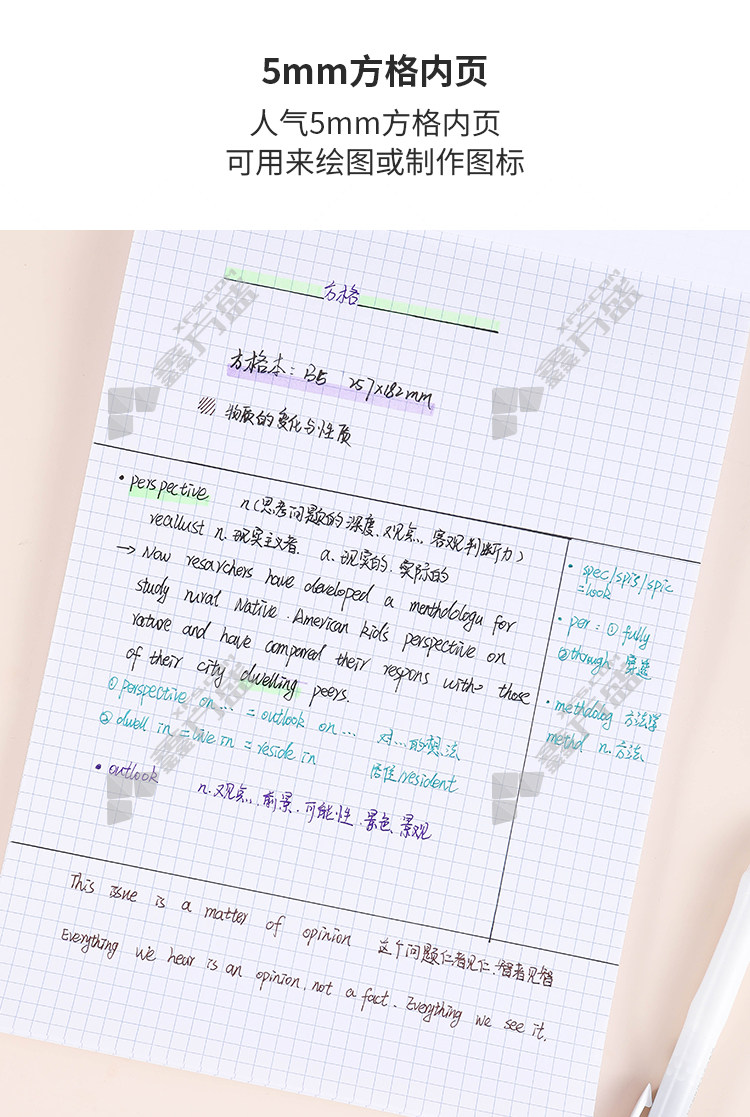 5mm方格内页
人气5mm方格内页
可用来绘图或制作图标
方格
方格本：B5 257×182mm
物质的变化与性质
• perspective n(思考问题的深度、观点、客观判断力)
reallust n.现实主义者. a.现实的.实际的
→ Now resarchers have developed a menthdologu for
study rural Native. American kid's perspective on
rature and have compared their respons with those
of their city dwelling peers.
① perspective on... = outlook on... 对...的想法
② dwell in = live in = reside in 居住/resident
• outlook n.观点.前景.可能性.景色.景观
• spec/spis/spic
=look
• per: ① fully
②through 穿透
• methdolog 方法学
methd n.方法
This issue is a matter of opinion 这个问题仁者见仁.智者见智
Everything we hear is an opinion, not a fact. Everything we see it.
鑫方盛
XFS.COM
鑫方盛
XFS.COM
鑫方盛
鑫方盛